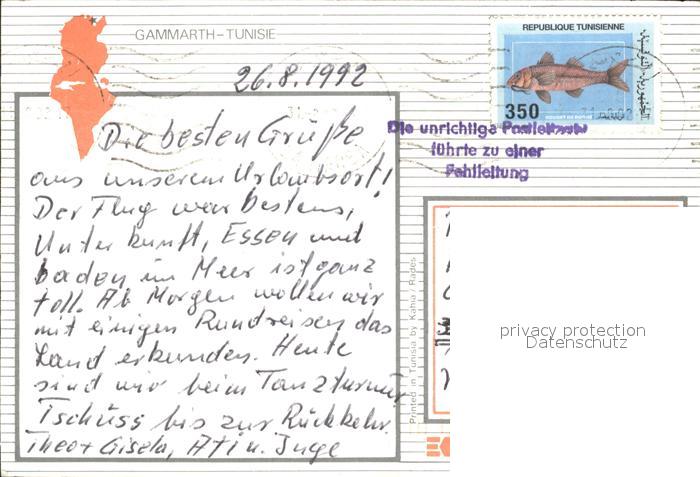 GAMMARTH-TUNISIE
26.8.1992
REPUBLIQUE TUNISIENNE
الجمهورية التونسية
350
ROUGET DE ROCHE
Die unrichtige Postleitzahl
führte zu einer
Fehlleitung
Die besten Grüße
aus unserem Urlaubsort!
Der Flug war bestens,
Unterkunft, Essen und
baden im Meer ist ganz
toll. Ab Morgen wollen wir
mit einigen Rundreisen das
Land erkunden. Heute
sind wir beim Tanzturnier
Tschüss bis zur Rückkehr.
Theo + Gisela, Ati u. Inge
Printed in Tunisia by Kahia / Rades
privacy protection
Datenschutz